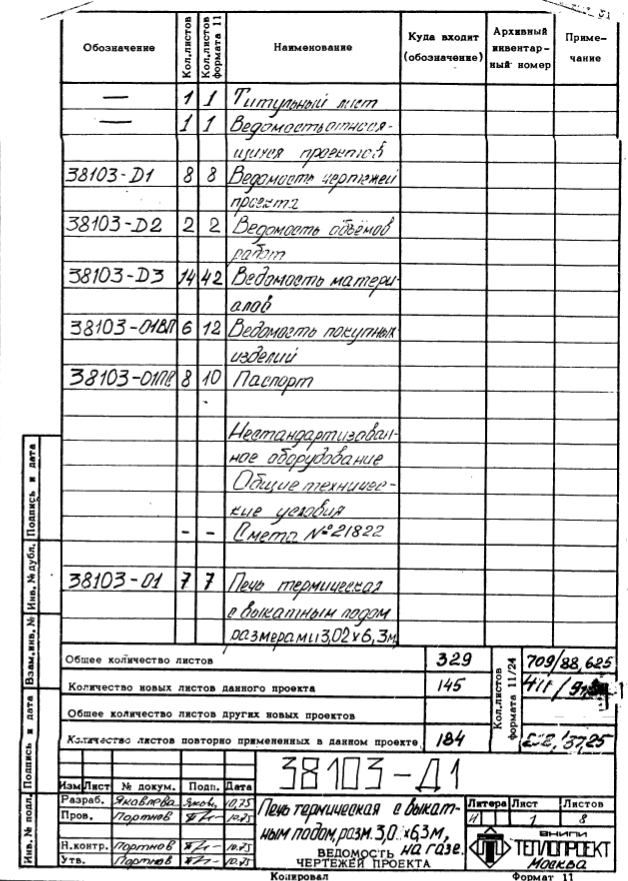 Обозначение Кол.листов Кол.листов формата 11 Наименование Куда входит (обозначение) Архивный инвентар-ный номер Приме-чание
— 1 1 Титульный лист
— 1 1 Ведомость относя-
щихся проектов
38103-D1 8 8 Ведомость чертежей
проекта
38103-D2 2 2 Ведомость объёмов
работ
38103-D3 14 42 Ведомость матери-
алов
38103-01ВП 6 12 Ведомость покупных
изделий
38103-01ПС 8 10 Паспорт
Нестандартизован-
ное оборудование
Общие техничес-
кие условия
- - Смета №21822
38103-01 7 7 Печь термическая
с выкатным подом
размерами 3,02х6,3м
Общее количество листов 329 Кол.листов формата 11/24 709/88,625
Количество новых листов данного проекта 145 411
Общее количество листов других новых проектов
Количество листов повторно примененных в данном проекте 184
38103-Д1
Изм Лист № докум. Подп. Дата
Разраб. Яковлева Яков. 10,75
Пров. Портнов 10.75
Н.контр. Портнов 10.75
Утв. Портнов 10.75
Печь термическая с выкат-
ным подом, разм. 3,0 х6,3м,
на газе.
ВЕДОМОСТЬ
ЧЕРТЕЖЕЙ ПРОЕКТА
Литера Лист Листов
И 1 8
ВНИПИ
ТЕПЛОПРОЕКТ
Москва
Копировал Формат 11
Подпись и дата
Инв. № дубл.
Взам. инв. №
Подпись и дата
Инв. № подл.